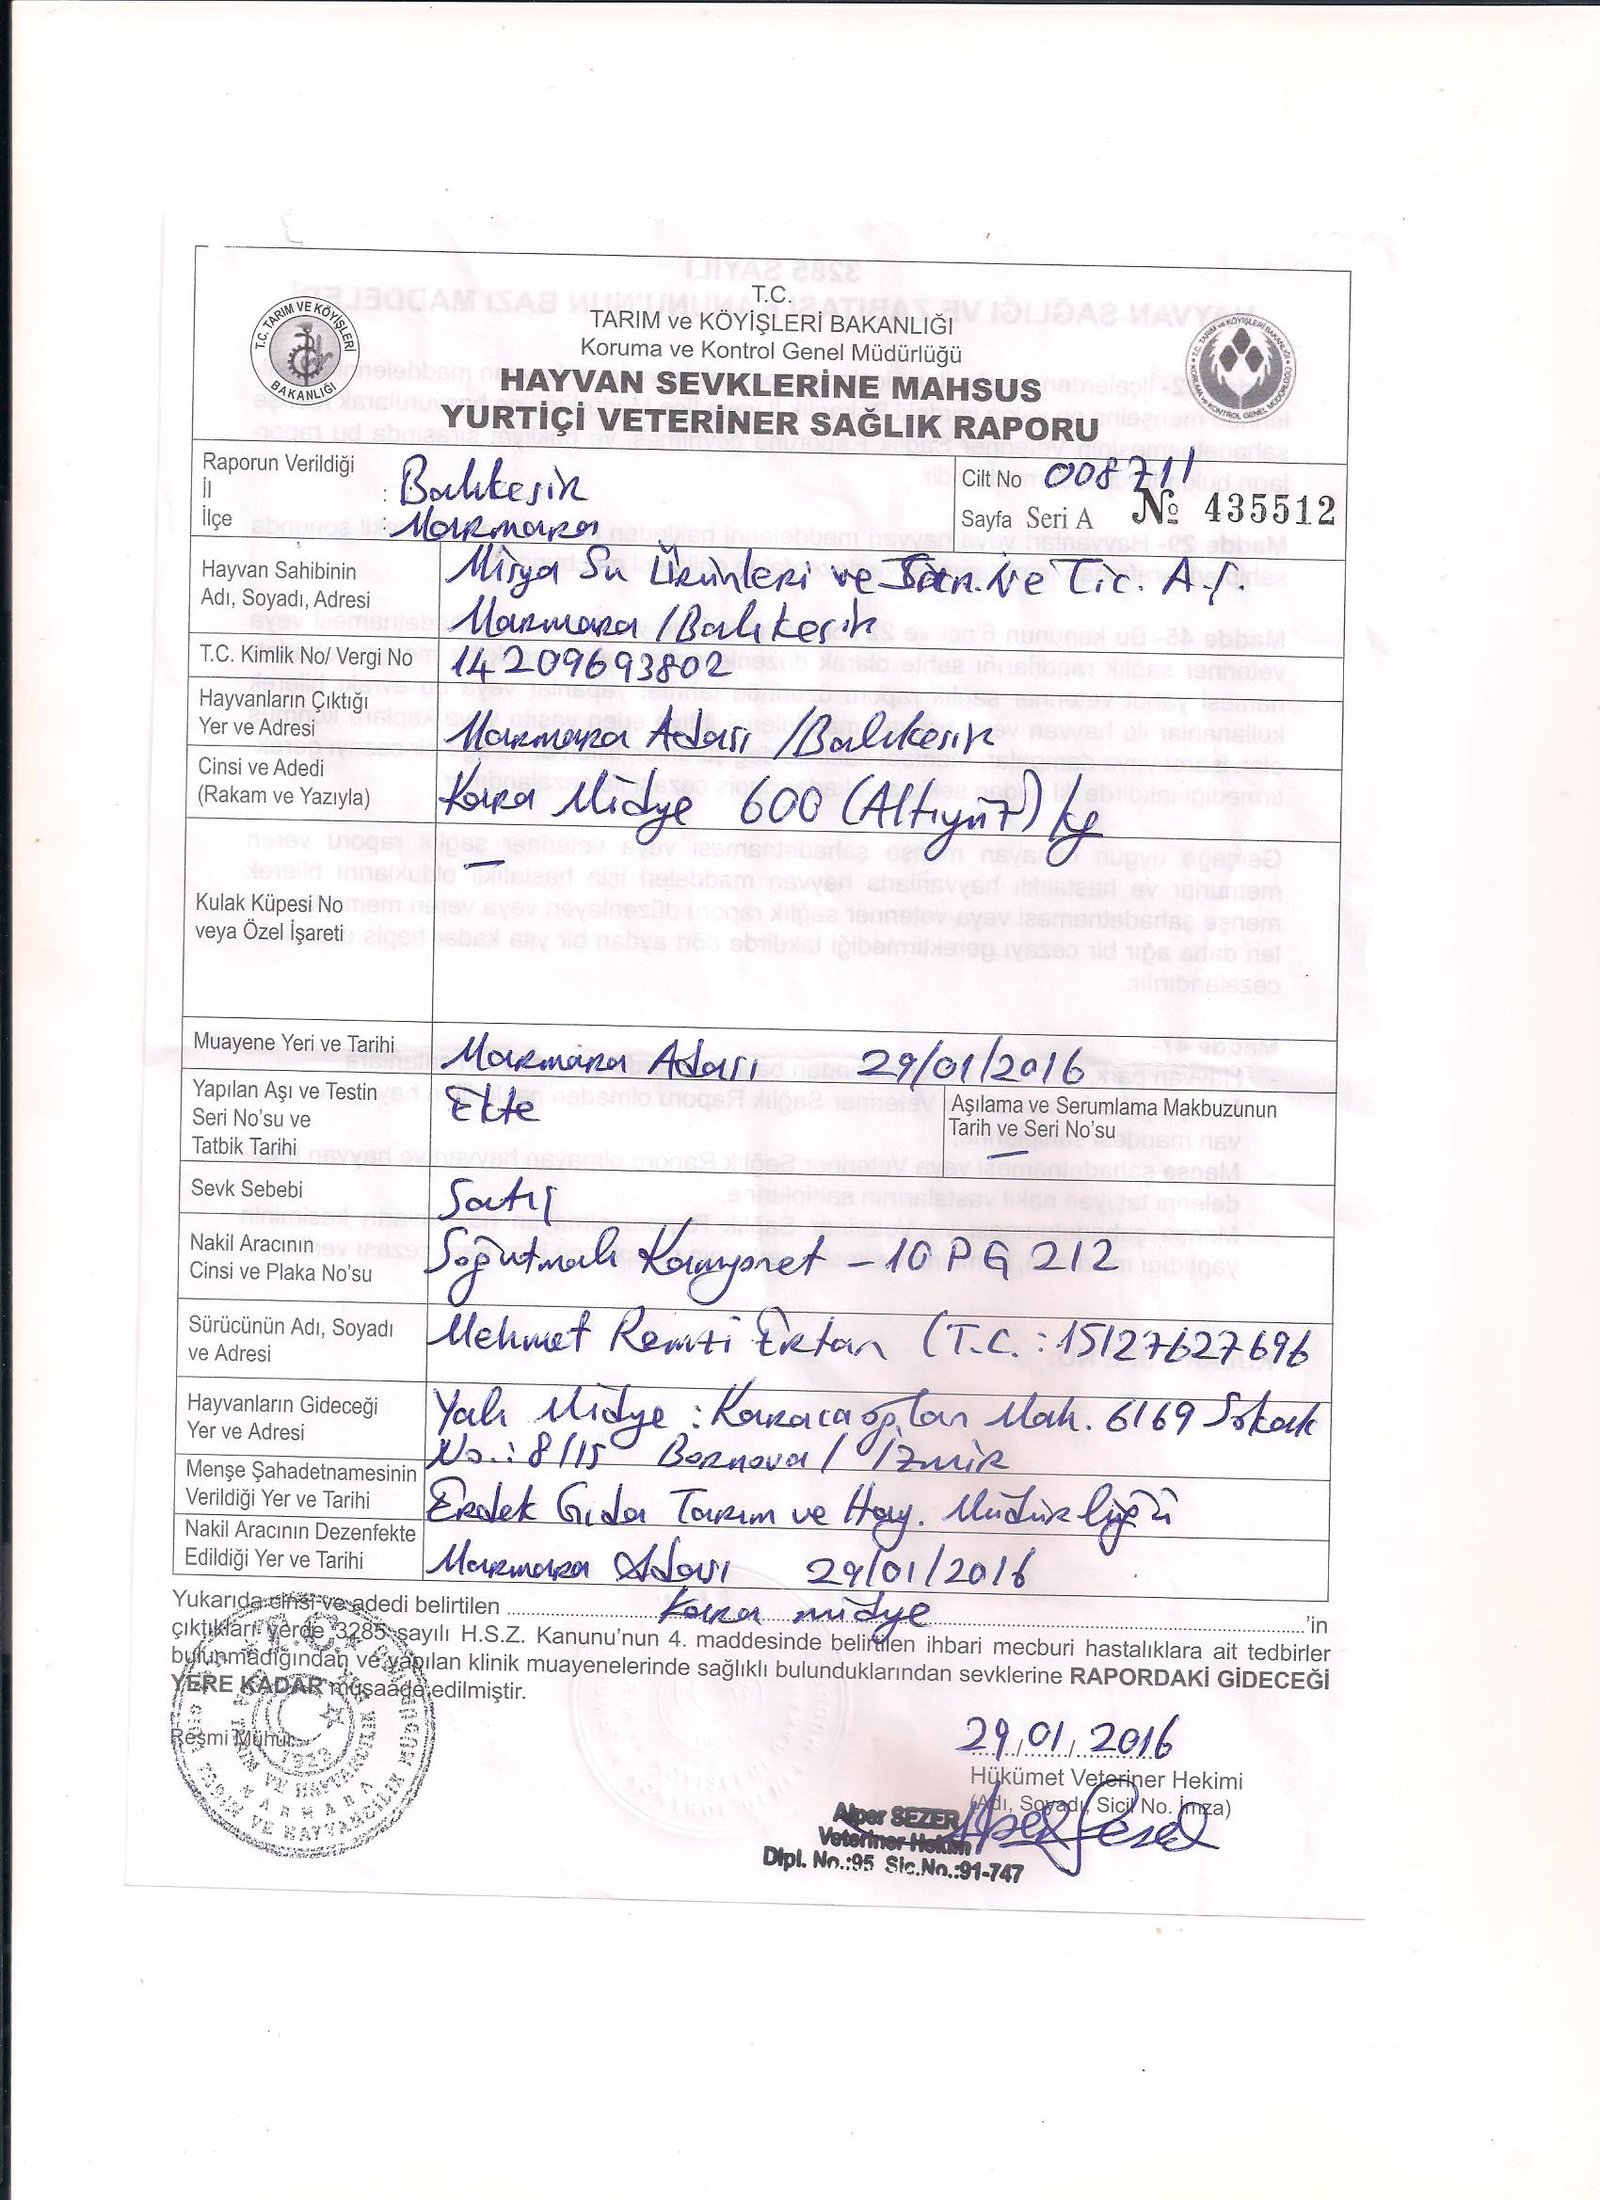 T.C.
TARIM ve KÖYİŞLERİ BAKANLIĞI
Koruma ve Kontrol Genel Müdürlüğü
HAYVAN SEVKLERİNE MAHSUS
YURTİÇİ VETERİNER SAĞLIK RAPORU
T.C. TARIM VE KÖYİŞLERİ BAKANLIĞI
Raporun Verildiği
İl : Balıkesir
İlçe : Marmara
Cilt No 008711
Sayfa Seri A № 435512
Hayvan Sahibinin
Adı, Soyadı, Adresi
Misya Su Ürünleri ve San. Ve Tic. A.Ş.
Marmara / Balıkesir
T.C. Kimlik No/ Vergi No 14209693802
Hayvanların Çıktığı
Yer ve Adresi
Marmara Adası / Balıkesir
Cinsi ve Adedi
(Rakam ve Yazıyla)
Kara Midye 600 (Altıyüz) kg
Kulak Küpesi No
veya Özel İşareti
—
Muayene Yeri ve Tarihi Marmara Adası 29/01/2016
Yapılan Aşı ve Testin
Seri No'su ve
Tatbik Tarihi
Ekte
Aşılama ve Serumlama Makbuzunun
Tarih ve Seri No'su
—
Sevk Sebebi Satış
Nakil Aracının
Cinsi ve Plaka No'su
Soğutmalı Kamyonet - 10 PG 212
Sürücünün Adı, Soyadı
ve Adresi
Mehmet Remzi Ertan (T.C. : 15127627696
Hayvanların Gideceği
Yer ve Adresi
Yalı Midye : Karacaoğlan Mah. 6169 Sokak
No.: 8/15 Bornova / İzmir
Menşe Şahadetnamesinin
Verildiği Yer ve Tarihi
Erdek Gıda Tarım ve Hay. Müdürlüğü
Nakil Aracının Dezenfekte
Edildiği Yer ve Tarihi
Marmara Adası 29/01/2016
Yukarıda cinsi ve adedi belirtilen Kara midye 'in
çıktıkları yerde 3285 sayılı H.S.Z. Kanunu'nun 4. maddesinde belirtilen ihbari mecburi hastalıklara ait tedbirler
bulunmadığından ve yapılan klinik muayenelerinde sağlıklı bulunduklarından sevklerine RAPORDAKİ GİDECEĞİ
YERE KADAR müsaade edilmiştir.
Resmi Mühür
29.01.2016
Hükümet Veteriner Hekimi
(Adı, Soyadı, Sicil No. İmza)
Alper SEZER
Veteriner Hekim
Dipl. No.:95 Sic.No.:91-747